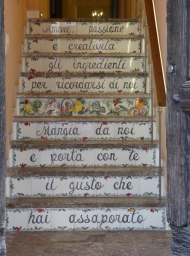 Amore, passione
e creatività
gli ingredienti
per ricordarsi di noi
Mangia da noi
e porta con te
il gusto che
hai assaporato